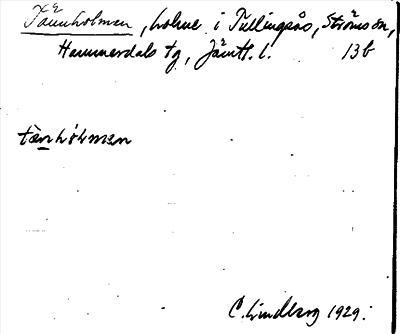 Tännholmen, holme i Tullingsås, Ströms sn,
Hammerdals tg, Jämtl. l. 13b
tænhòlmen
C. Lindberg 1929.